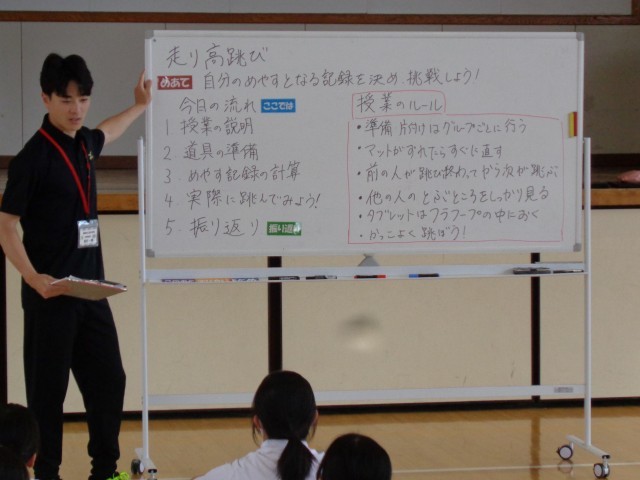 走り高跳び
めあて 自分のめやすとなる記録を決め、挑戦しよう!
今日の流れ ここでは
1 授業の説明
2 道具の準備
3 めやす記録の計算
4 実際に跳んでみよう!
5. 振り返り 振り返り
授業のルール
・準備 片付けはグループごとに行う
・マットがずれたらすぐに直す
・前の人が跳び終わってから次が跳ぶ
・他の人の とるところをしっかり見る
・タブレットはフラフープの中におく
・かっこよく跳ぼう!